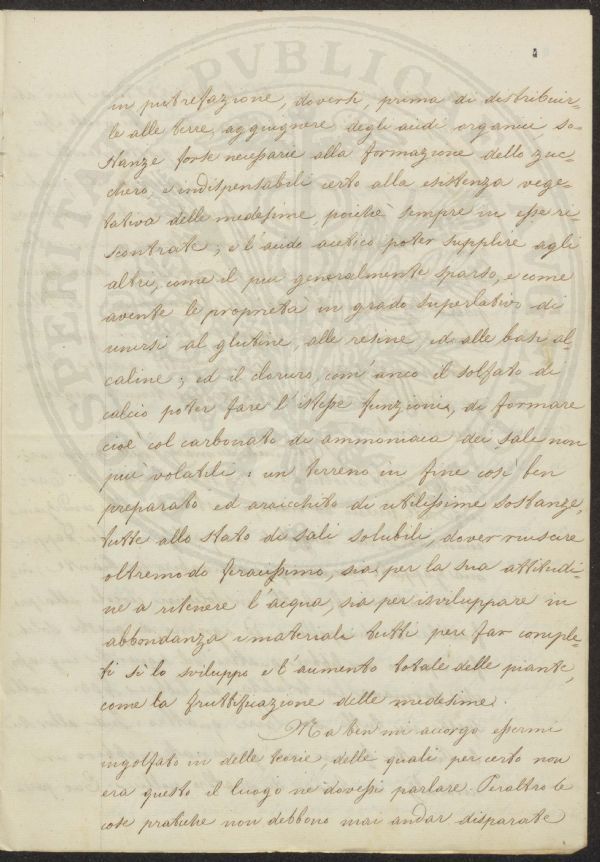 in putrefazione, doversi, prima di distribuir-
le alle terre, aggiugnere degli acidi organici so-
stanze forse necessarie alla formazione dello zuc-
chero, e indispensabili certo alla esistenza vege-
tativa delle medesime, poichè sempre in esse ri-
scontrate; e l'acido acetico poter supplire agli
altri, come il piu generalmente sparso, e come
avente le proprietà in grado superlativo di
unirsi al glutine, alle resine, ed alle basi al-
caline; ed il cloruro, com'anco il solfato di
calcio poter fare l'istesse funzioni, di formare
cioè col carbonato di ammoniaca dei sale non
più volatili: un terreno in fine così ben
preparato ed arricchito di utilissime sostanze,
tutte allo stato di sali solubili, dover riuscire
oltremodo feracissimo, sia per la sua attitudi-
ne a ritenere l'acqua, sia per isviluppare in
abbondanza i materiali tutti per far comple-
ti sì lo sviluppo e l'aumento totale delle piante,
come la fruttificazione delle medesime.
Ma ben mi accorgo essermi
ingolfato in delle teorie, delle quali per certo non
era questo il luogo ne dovessi parlare. Peraltro le
cose pratiche non debbono mai andar disparate
SPERITAS PVBLICA